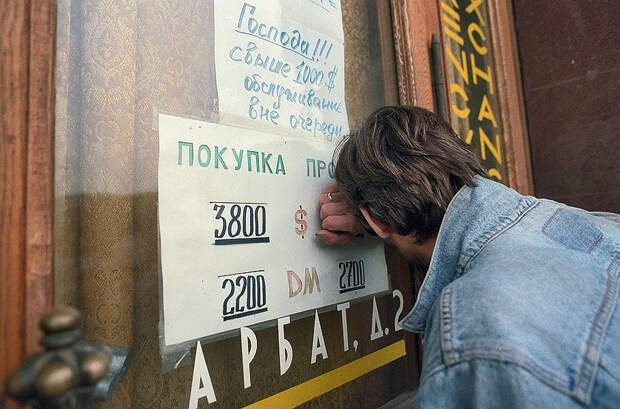 Господа!!!
свыше 1000 $
обслуживание
вне очереди
ПОКУПКА ПРО
3800 $
2200 DM 2700
АРБАТ, Д. 2
EXCHANGE